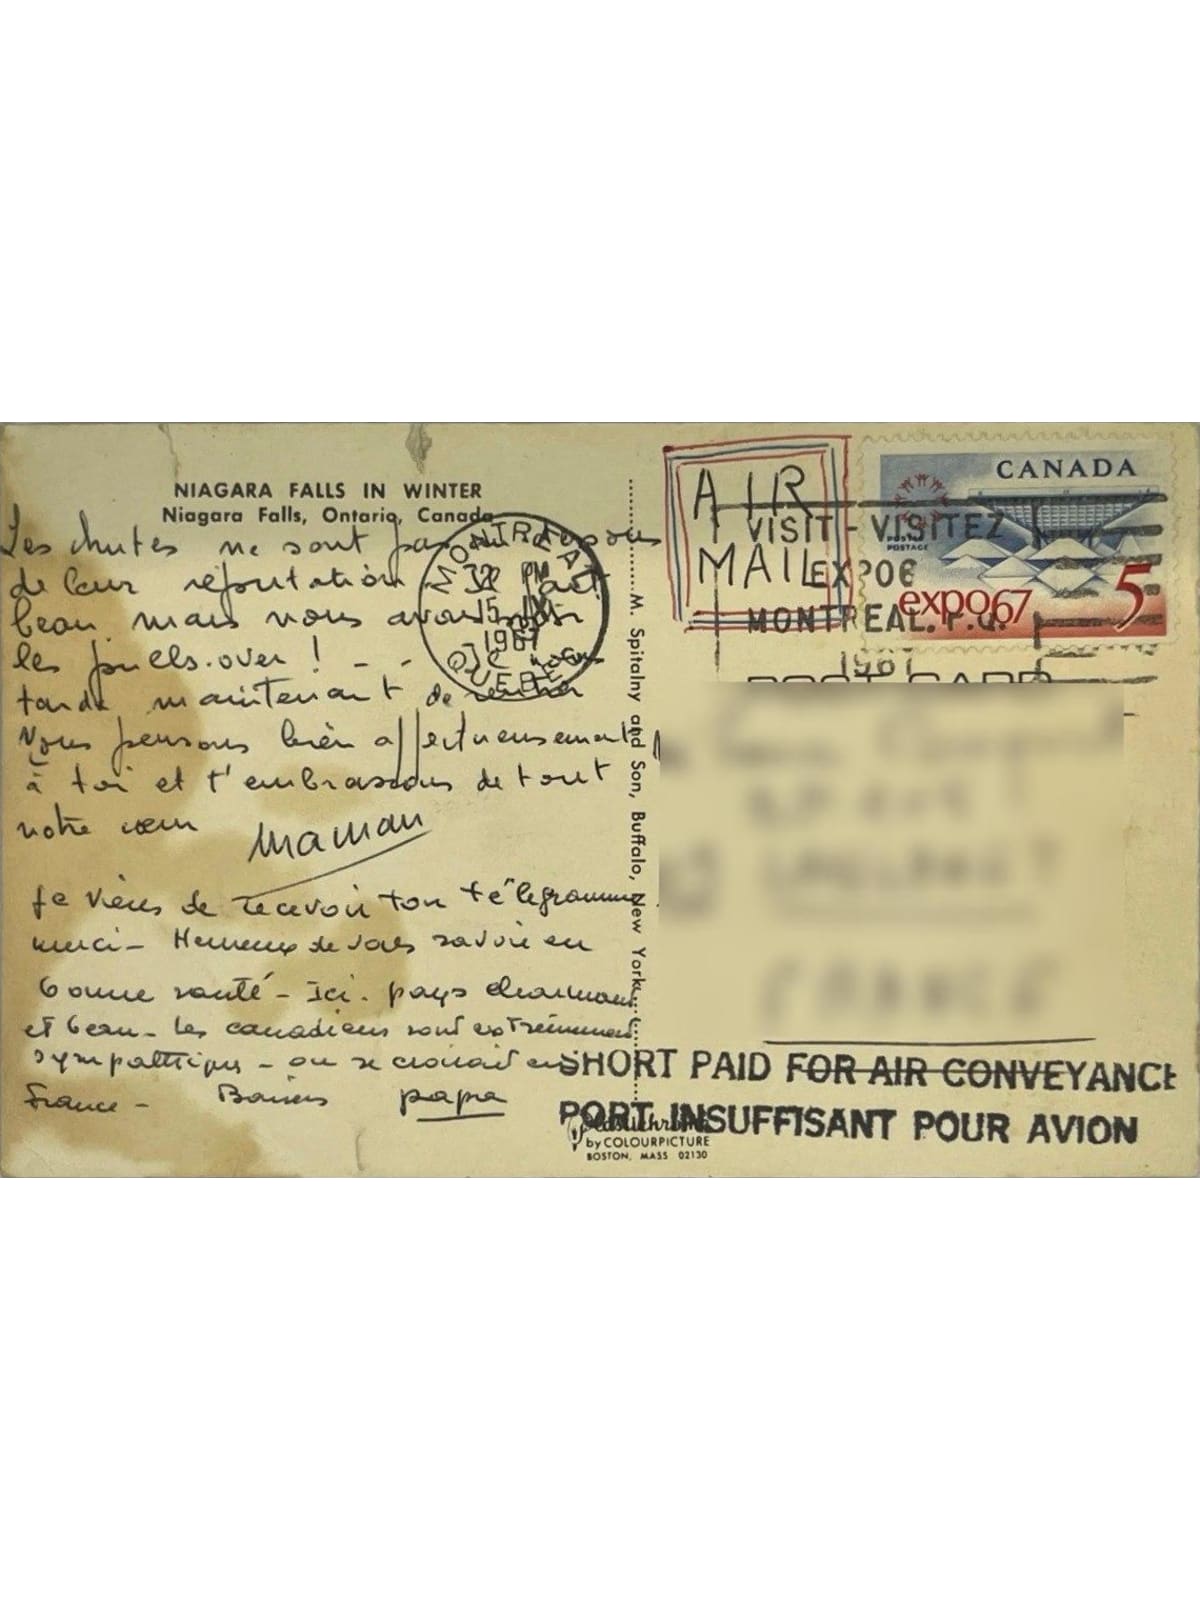 NIAGARA FALLS IN WINTER
Niagara Falls, Ontario, Canada
Les chutes ne sont pas au dessous
de leur réputation
beau, mais nous avons
les pulls-over ! - -
tarde maintenant de rentrer
Nous pensons bien affectueusement
à toi et t'embrassons de tout
notre cœur
maman
Je viens de recevoir ton télégramme
merci - Heureux de vous savoir en
bonne santé - Ici. pays charmant
et beau - Les canadiens sont extrêmement
sympathiques - on se croirait en
France - Baisers papa
MONTREAL
PM
15 IX
1967
QUEBEC
M. Spitalny and Son, Buffalo, New York
AIR
MAIL
VISIT - VISITEZ
EXPO6
MONTREAL. P.Q.
1967
CANADA
POSTES
POSTAGE
expo67
5
POST CARD
SHORT PAID FOR AIR CONVEYANCE
PORT INSUFFISANT POUR AVION
Plastichrome
by COLOURPICTURE
BOSTON, MASS 02130